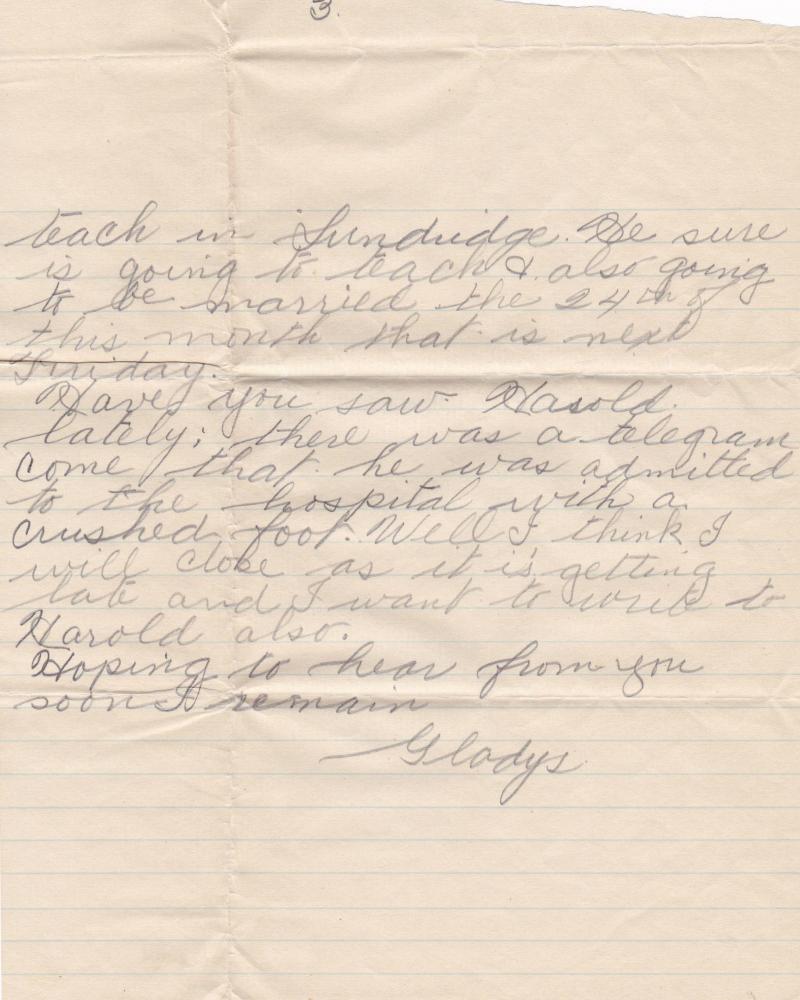 3.
teach in Sundridge. He sure
is going to teach & also going
to be married the 24th of
this month that is next
Friday.
Have you saw Harold
lately; there was a telegram
come that he was admitted
to the hospital with a
crushed foot. Well I think I
will close as it is getting
late and I want to write to
Harold also.
Hoping to hear from you
soon I remain
Gladys